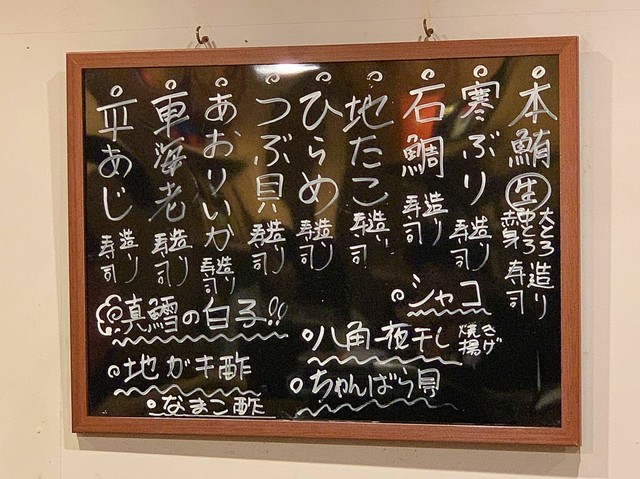 本鮪 生 大とろ 中とろ 赤身 造り 寿司
寒ぶり 造り 寿司
石鯛 造り 寿司
地たこ 造り 寿司
ひらめ 造り 寿司
つぶ貝 造り 寿司
あおりいか 造り 寿司
車海老 造り 寿司
平あじ 造り 寿司
シャコ
八角一夜干し 焼き 揚げ
ちゃんばら貝
真鱈の白子!!
地ガキ酢
なまこ酢